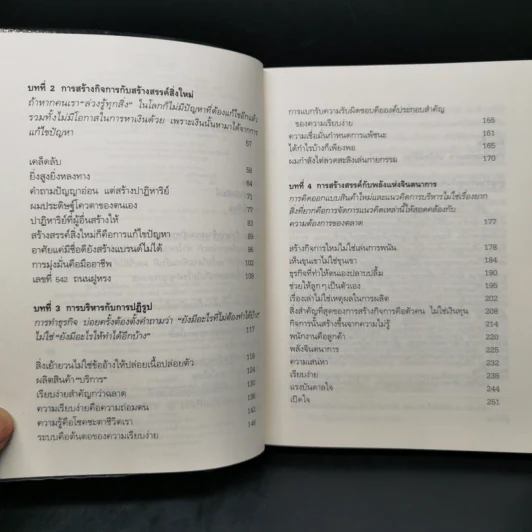 บทที่ 2 การสร้างกิจการกับสร้างสรรค์สิ่งใหม่
ถ้าหากคนเรา "ล่วงรู้ทุกสิ่ง" ในโลกก็ไม่มีปัญหาที่ต้องแก้ไขอีกแล้ว
รวมทั้งไม่มีโอกาสในการหาเงินด้วย เพราะเงินนั้นหามาได้จากการ
แก้ไขปัญหา 57
เคล็ดลับ 58
ยิ่งสูงยิ่งหลงทาง 64
คำถามปัญญาอ่อน แต่สร้างปาฏิหาริย์ 71
ผมประดิษฐ์โควตาของตนเอง 77
ปาฏิหาริย์ที่ผู้อื่นสร้างให้
สร้างสรรค์สิ่งใหม่ก็คือการแก้ไขปัญหา 89
อาศัยแต่มีชื่อดียังสร้างแบรนด์ไม่ได้ 96
การมุ่งมั่นคือมืออาชีพ 102
เลขที่ 542 ถนนฝูหรง 109
บทที่ 3 การบริหารกับการปฏิรูป
การทำธุรกิจ บ่อยครั้งต้องตั้งคำถามว่า "ยังมีอะไรที่ไม่ต้องทำได้บ้าง"
ไม่ใช่ "ยังมีอะไรให้ทำได้อีกบ้าง" 117
สิ่งเย้ายวนไม่ใช่ข้ออ้างให้ปล่อยเนื้อปล่อยตัว 118
ผลิตสินค้า "บริการ" 124
เรียบง่ายสำคัญกว่าฉลาด 130
ความเรียบง่ายคือความถ่อมตน 136
ความรู้คือโชคชะตาชีวิตเรา 143
ระบบคือต้นตอของความเรียบง่าย
การแบกรับความรับผิดชอบคือองค์ประกอบสำคัญ
ของความเรียบง่าย 155
ความเชื่อมั่นกำหนดการแพ้ชนะ 161
ได้กำไรบ้างก็เพียงพอ 165
ผมกำลังไล่ลวดสะลิงเล่นกายกรรม 170
บทที่ 4 การสร้างสรรค์กับพลังแห่งจินตนาการ
การคิดออกแบบสินค้าใหม่และแนวคิดการบริหารไม่ใช่เรื่องยาก
สิ่งที่ยากคือการจัดการแนวคิดเหล่านี้ให้สอดคล้องกับ
ความต้องการของตลาด 177
สร้างกิจการใหม่ไม่ใช่เล่นการพนัน 178
เห็นขุนเขาไม่ใช่ขุนเขา 184
ธุรกิจที่ทำให้ตนเองปลาบปลื้ม 190
ช่วยให้ลูก ๆ เป็นตัวเอง 195
เรื่องเล่าไม่ใช่เหตุผลในการผลิต 202
สิ่งสำคัญที่สุดของการสร้างกิจการคือตัวคน ไม่ใช่เงินทุน 208
กิจการนั้นสร้างขึ้นจากความไม่รู้ 214
พนักงานคือลูกค้า 220
พลังจินตนาการ 225
ความเสน่หา 232
เรียบง่าย 238
แรงบันดาลใจ 244
เปิดใจ 251